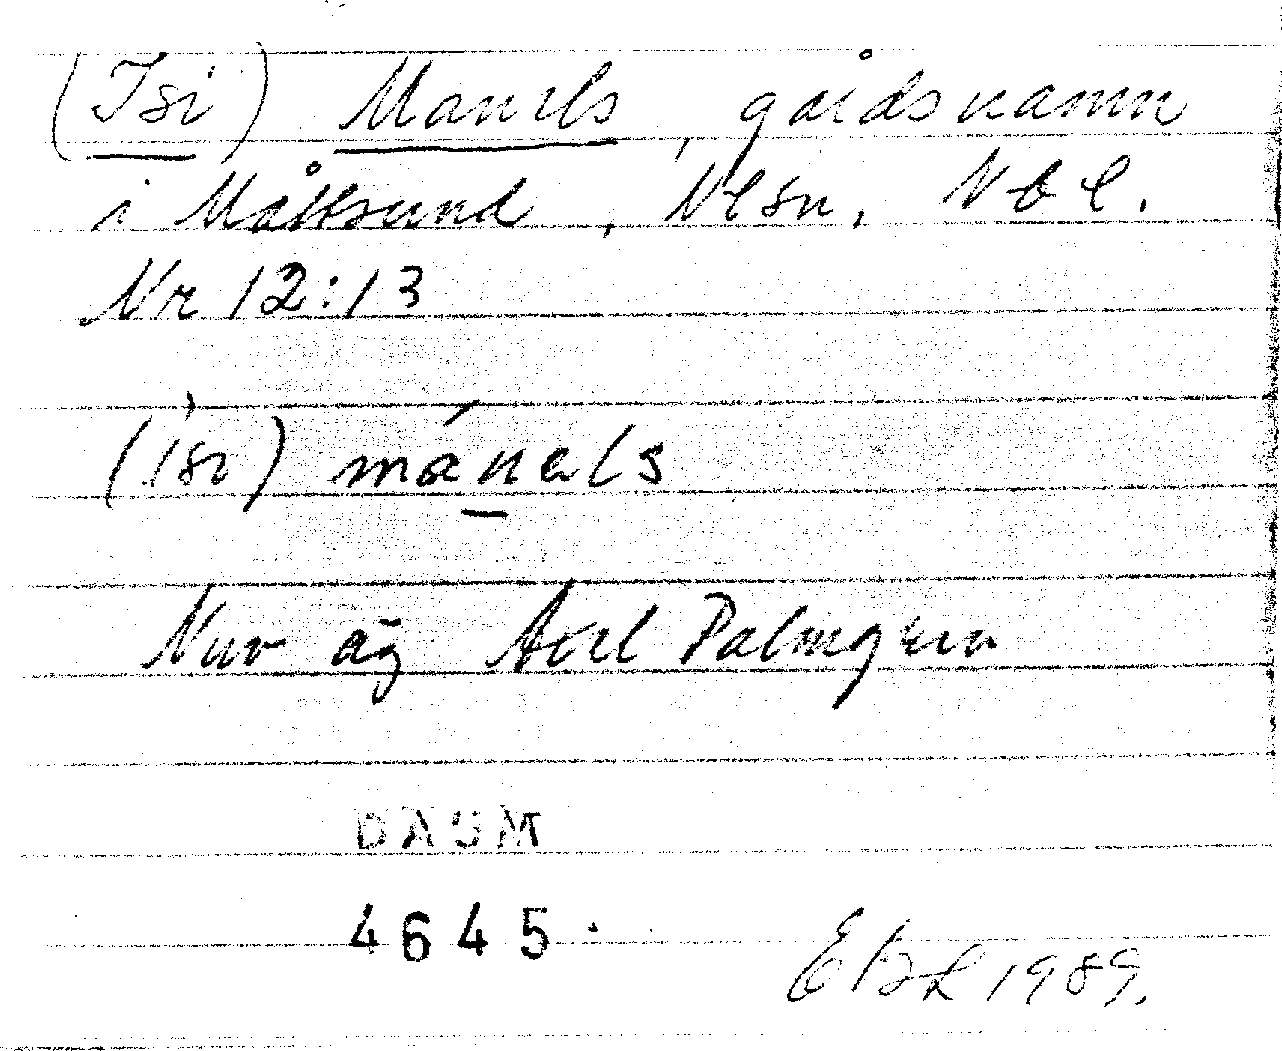 (Isi) Manels, gårdsnamn
i Måttsund, Nlsn, Nbl.
Nr 12:13
(ísi) mánels
Nuv äg Axel Palmgren
DAUM
4645.
EBL 1989.